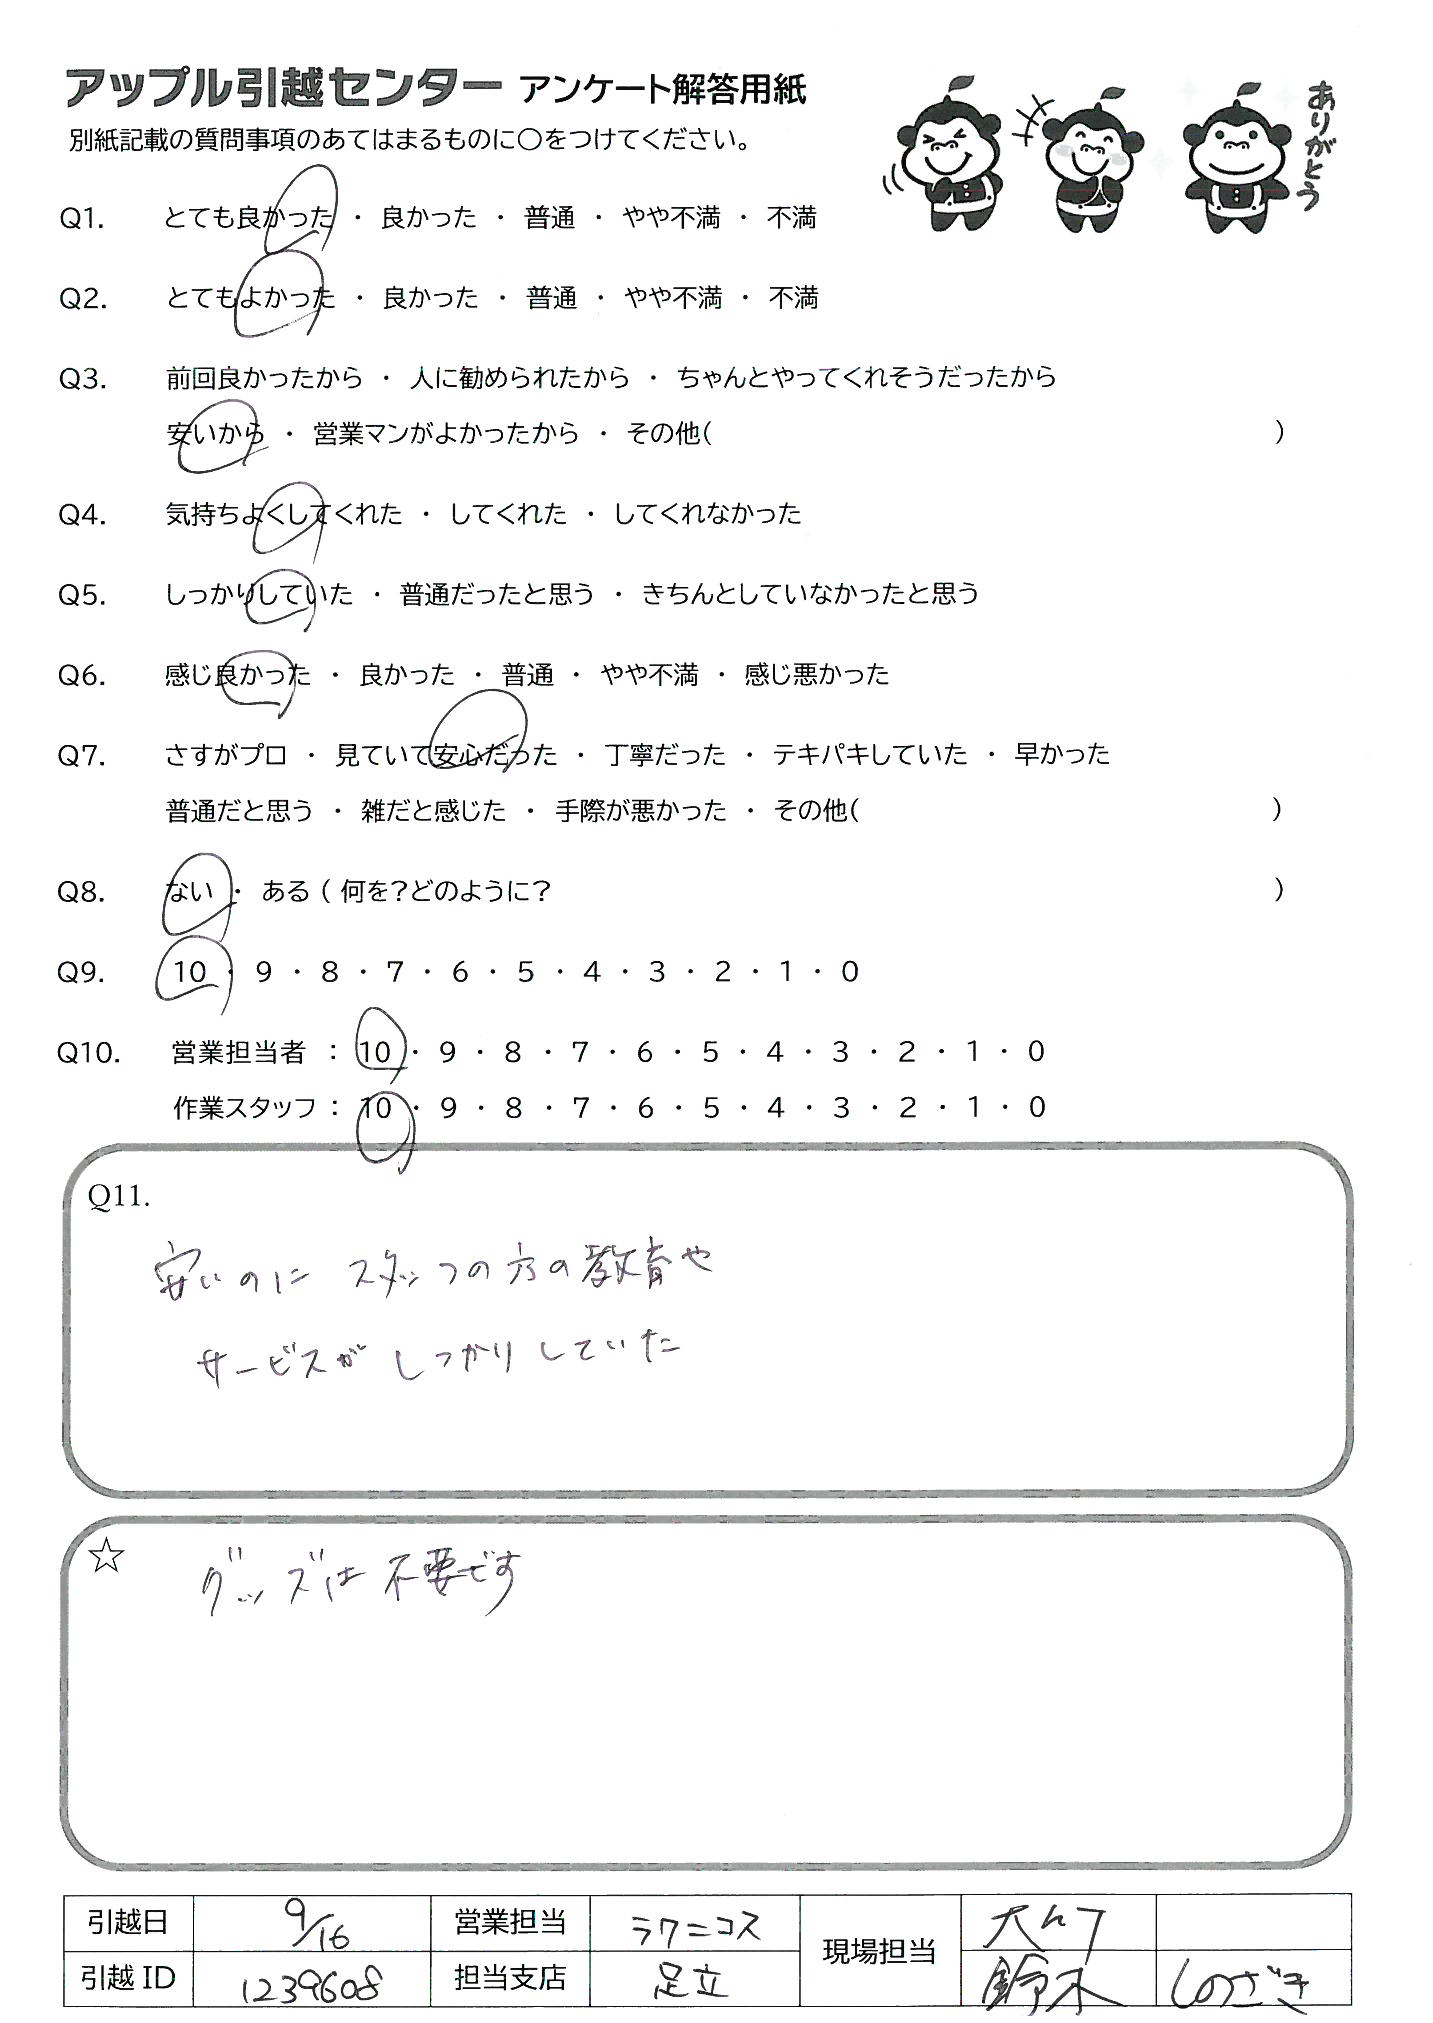 アップル引越センター アンケート解答用紙
ありがとう
別紙記載の質問事項のあてはまるものに〇をつけてください。
Q1. とても良かった ・ 良かった ・ 普通 ・ やや不満 ・ 不満
Q2. とてもよかった ・ 良かった ・ 普通 ・ やや不満 ・ 不満
Q3. 前回良かったから ・ 人に勧められたから ・ ちゃんとやってくれそうだったから
安いから ・ 営業マンがよかったから ・ その他( )
Q4. 気持ちよくしてくれた ・ してくれた ・ してくれなかった
Q5. しっかりしていた ・ 普通だったと思う ・ きちんとしていなかったと思う
Q6. 感じ良かった ・ 良かった ・ 普通 ・ やや不満 ・ 感じ悪かった
Q7. さすがプロ ・ 見ていて安心だった ・ 丁寧だった ・ テキパキしていた ・ 早かった
普通だと思う ・ 雑だと感じた ・ 手際が悪かった ・ その他( )
Q8. ない ・ ある ( 何を?どのように? )
Q9. 10 ・ 9 ・ 8 ・ 7 ・ 6 ・ 5 ・ 4 ・ 3 ・ 2 ・ 1 ・ 0
Q10. 営業担当者 : 10 ・ 9 ・ 8 ・ 7 ・ 6 ・ 5 ・ 4 ・ 3 ・ 2 ・ 1 ・ 0
作業スタッフ : 10 ・ 9 ・ 8 ・ 7 ・ 6 ・ 5 ・ 4 ・ 3 ・ 2 ・ 1 ・ 0
Q11.
安いのに スタッフの方の教育や
サービスが しっかりしていた
☆ グッズは不要です
引越日 9/16 営業担当 ラクニコス 現場担当
引越ID 1239608 担当支店 足立 鈴木 しのざき